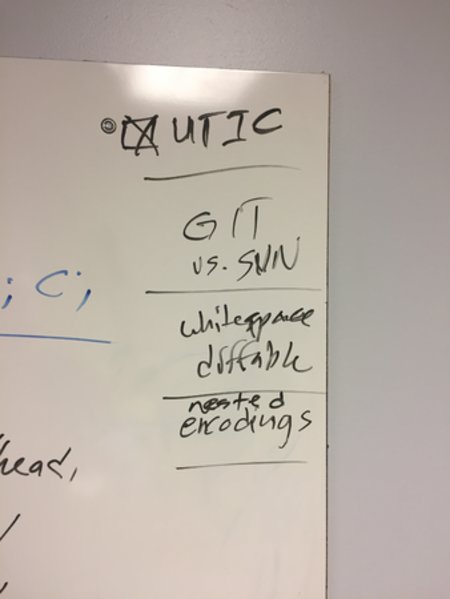 © ☒ UTIC
GIT
vs. SVN
; C;
whitespace
diffable
nested
encodings
head,